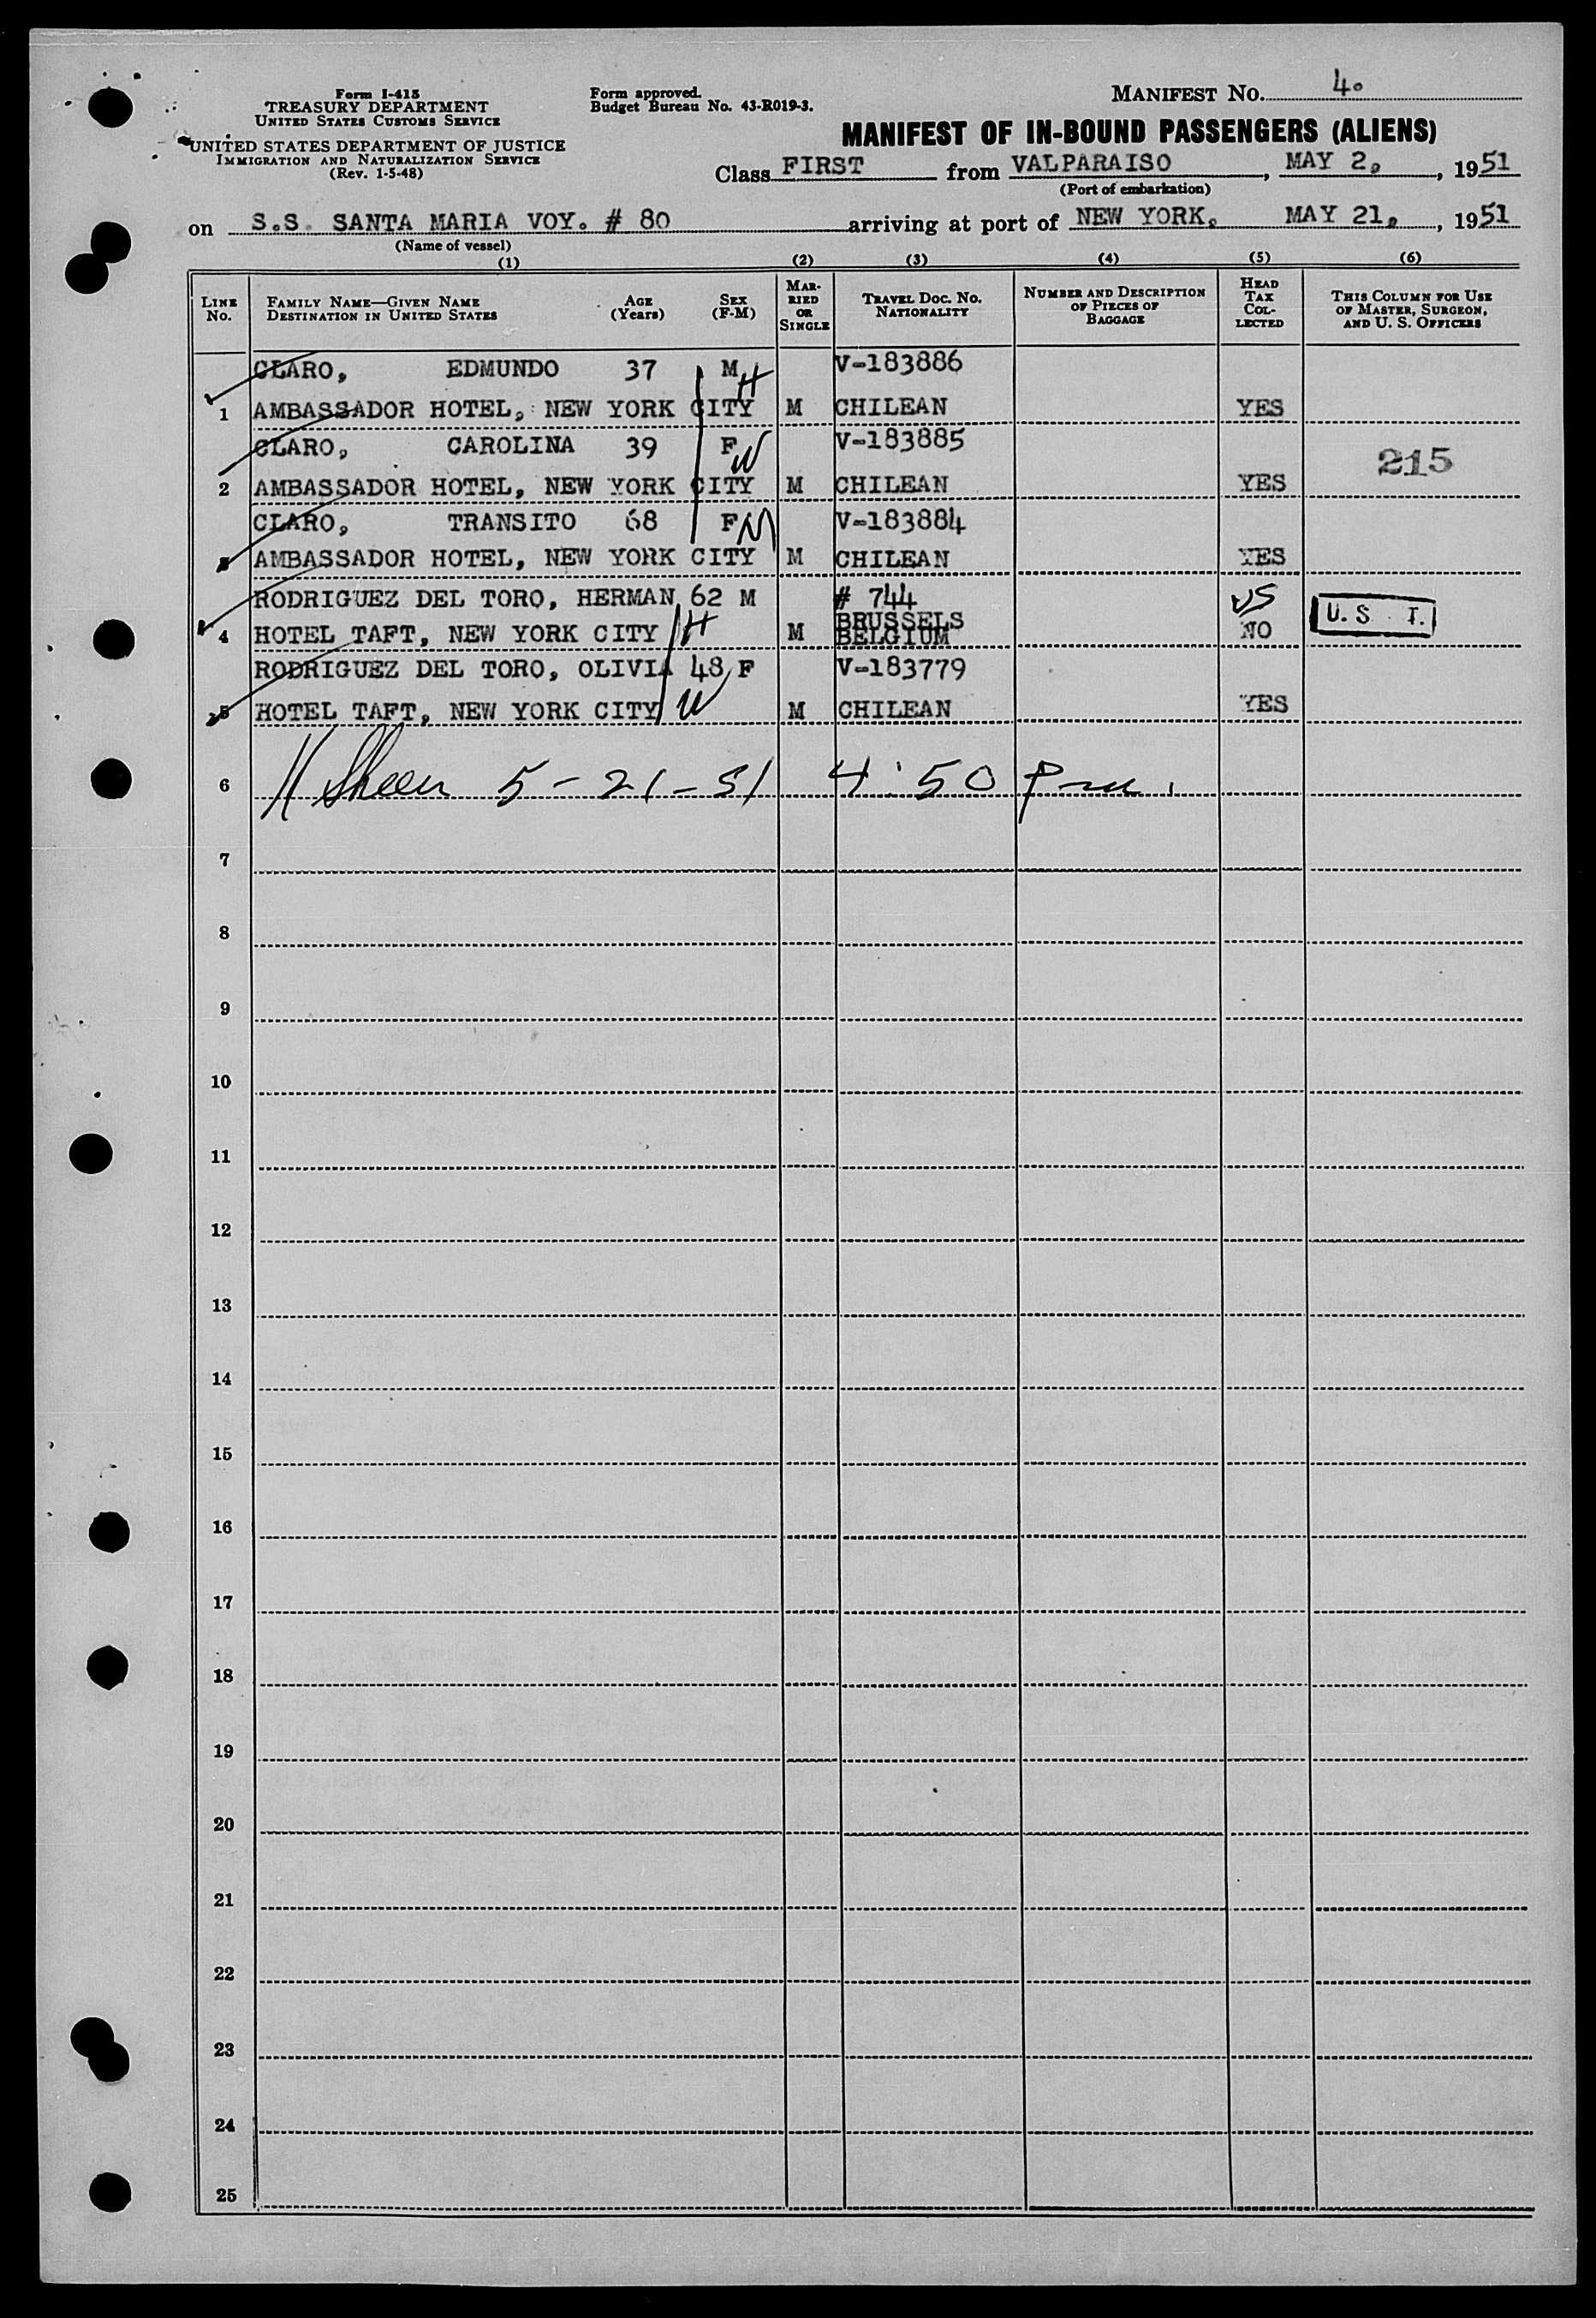 Form I-415
TREASURY DEPARTMENT
UNITED STATES CUSTOMS SERVICE
UNITED STATES DEPARTMENT OF JUSTICE
IMMIGRATION AND NATURALIZATION SERVICE
(Rev. 1-5-48)
Form approved.
Budget Bureau No. 43-R019-3.
MANIFEST NO. 4.
MANIFEST OF IN-BOUND PASSENGERS (ALIENS)
Class FIRST from VALPARAISO, MAY 2, , 1951
(Port of embarkation)
on S.S. SANTA MARIA VOY. # 80 arriving at port of NEW YORK, MAY 21, , 1951
(Name of vessel)
(1) (2) (3) (4) (5) (6)
LINE NO. FAMILY NAME—GIVEN NAME DESTINATION IN UNITED STATES AGE (Years) SEX (F-M) MARRIED OR SINGLE TRAVEL DOC. NO. NATIONALITY NUMBER AND DESCRIPTION OF PIECES OF BAGGAGE HEAD TAX COLLECTED THIS COLUMN FOR USE OF MASTER, SURGEON, AND U. S. OFFICERS
CLARO, EDMUNDO 37 M H V-183886
1 AMBASSADOR HOTEL, NEW YORK CITY M CHILEAN YES
CLARO, CAROLINA 39 F W V-183885
215
2 AMBASSADOR HOTEL, NEW YORK CITY M CHILEAN YES
CLARO, TRANSITO 68 F M V-183884
3 AMBASSADOR HOTEL, NEW YORK CITY M CHILEAN YES
RODRIGUEZ DEL TORO, HERMAN 62 M # 744 US
BRUSSELS U.S. T.
4 HOTEL TAFT, NEW YORK CITY H M BELGIUM NO
RODRIGUEZ DEL TORO, OLIVIA 48 F V-183779
5 HOTEL TAFT, NEW YORK CITY W M CHILEAN YES
6 Sheen 5-21-51 4:50 Pm.
7
8
9
10
11
12
13
14
15
16
17
18
19
20
21
22
23
24
25